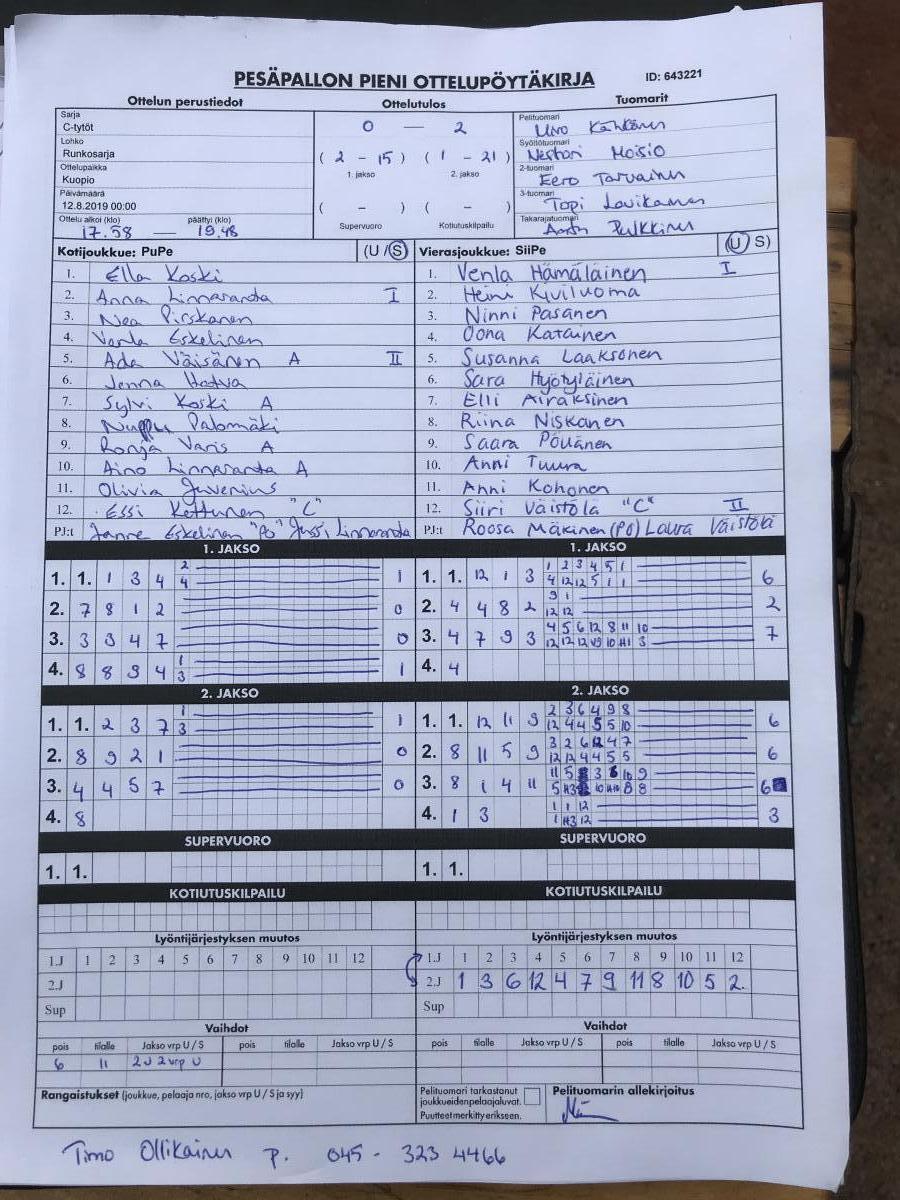 PESÄPALLON PIENI OTTELUPÖYTÄKIRJA ID: 643221
Ottelun perustiedot Ottelutulos Tuomarit
Sarja
C-tytöt
Lohko
Runkosarja
Ottelupaikka
Kuopio
Päivämäärä
12.8.2019 00:00
Ottelu alkoi (klo) päättyi (klo)
17.58 — 19.48
0 — 2
( 2 - 15 ) ( 1 - 21 )
1. jakso 2. jakso
( - ) ( - )
Supervuoro Kotiutuskilpailu
Pelituomari
Syöttötuomari
Moisio
2-tuomari
Eero Tarvainen
3-tuomari
Topi
Takarajatuomari
Pulkkinen
Kotijoukkue: PuPe (U / S)
1. Ella Koski
2. Anna Linnaranta I
3. Nea Pirskanen
4. Venla Eskelinen
5. Ada Väisänen A II
6. Jenna
7. Sylvi Koski A
8. Palomäki
9. Ronja Varis A
10. Aino Linnaranta A
11. Olivia Juvenius
12. Essi Kettunen "C"
PJ:t Janne Eskelinen "PO" Jussi Linnaranta
Vierasjoukkue: SiiPe (U / S)
1. Venla Hämäläinen I
2. Heini Kiviluoma
3. Ninni Pasanen
4. Oona Katainen
5. Susanna Laaksonen
6. Sara Hyötyläinen
7. Elli Airaksinen
8. Riina Niskanen
9. Saara Pöllänen
10. Anni Tuura
11. Anni Kohonen
12. Siiri Väistölä "C" II
PJ:t Roosa Mäkinen (PO) Laura Väistölä
1. JAKSO
1. 1. 1 3 4 2 1
4
2. 7 8 1 2 0
3. 3 3 4 7 0
4. 8 8 9 4 1 1
3
1. JAKSO
1. 1. 12 1 3 1 2 3 4 5 1 6
4 12 12 5 1 1
2. 4 4 8 2 9 1 2
12 12
3. 4 7 9 3 4 5 6 12 8 11 10 7
4. 4
2. JAKSO
1. 1. 2 3 7 1 1
3
2. 8 9 2 1 0
3. 4 4 5 7 0
4. 8
2. JAKSO
1. 1. 12 11 9 2 3 6 4 9 8 6
12 4 4 5 5 10
2. 8 11 5 9 3 2 6 12 4 7 6
12 12 4 4 5 5
3. 8 1 4 11 6
4. 1 3 1 1 12 3
SUPERVUORO
1. 1.
SUPERVUORO
1. 1.
KOTIUTUSKILPAILU
KOTIUTUSKILPAILU
Lyöntijärjestyksen muutos
1.J 1 2 3 4 5 6 7 8 9 10 11 12
2.J
Sup
Lyöntijärjestyksen muutos
1.J 1 2 3 4 5 6 7 8 9 10 11 12
2.J 1 3 6 12 4 7 9 11 8 10 5 2.
Sup
Vaihdot
pois tilalle Jakso vrp U / S pois tilalle Jakso vrp U / S
6 11 2J 2vrp U
Vaihdot
pois tilalle Jakso vrp U / S pois tilalle Jakso vrp U / S
Rangaistukset (joukkue, pelaaja nro, jakso vrp U / S ja syy)
Pelituomari tarkastanut
joukkueidenpelaajaluvat.
Puutteet merkitty erikseen.
Pelituomarin allekirjoitus
Timo Ollikainen p. 045 - 323 4466